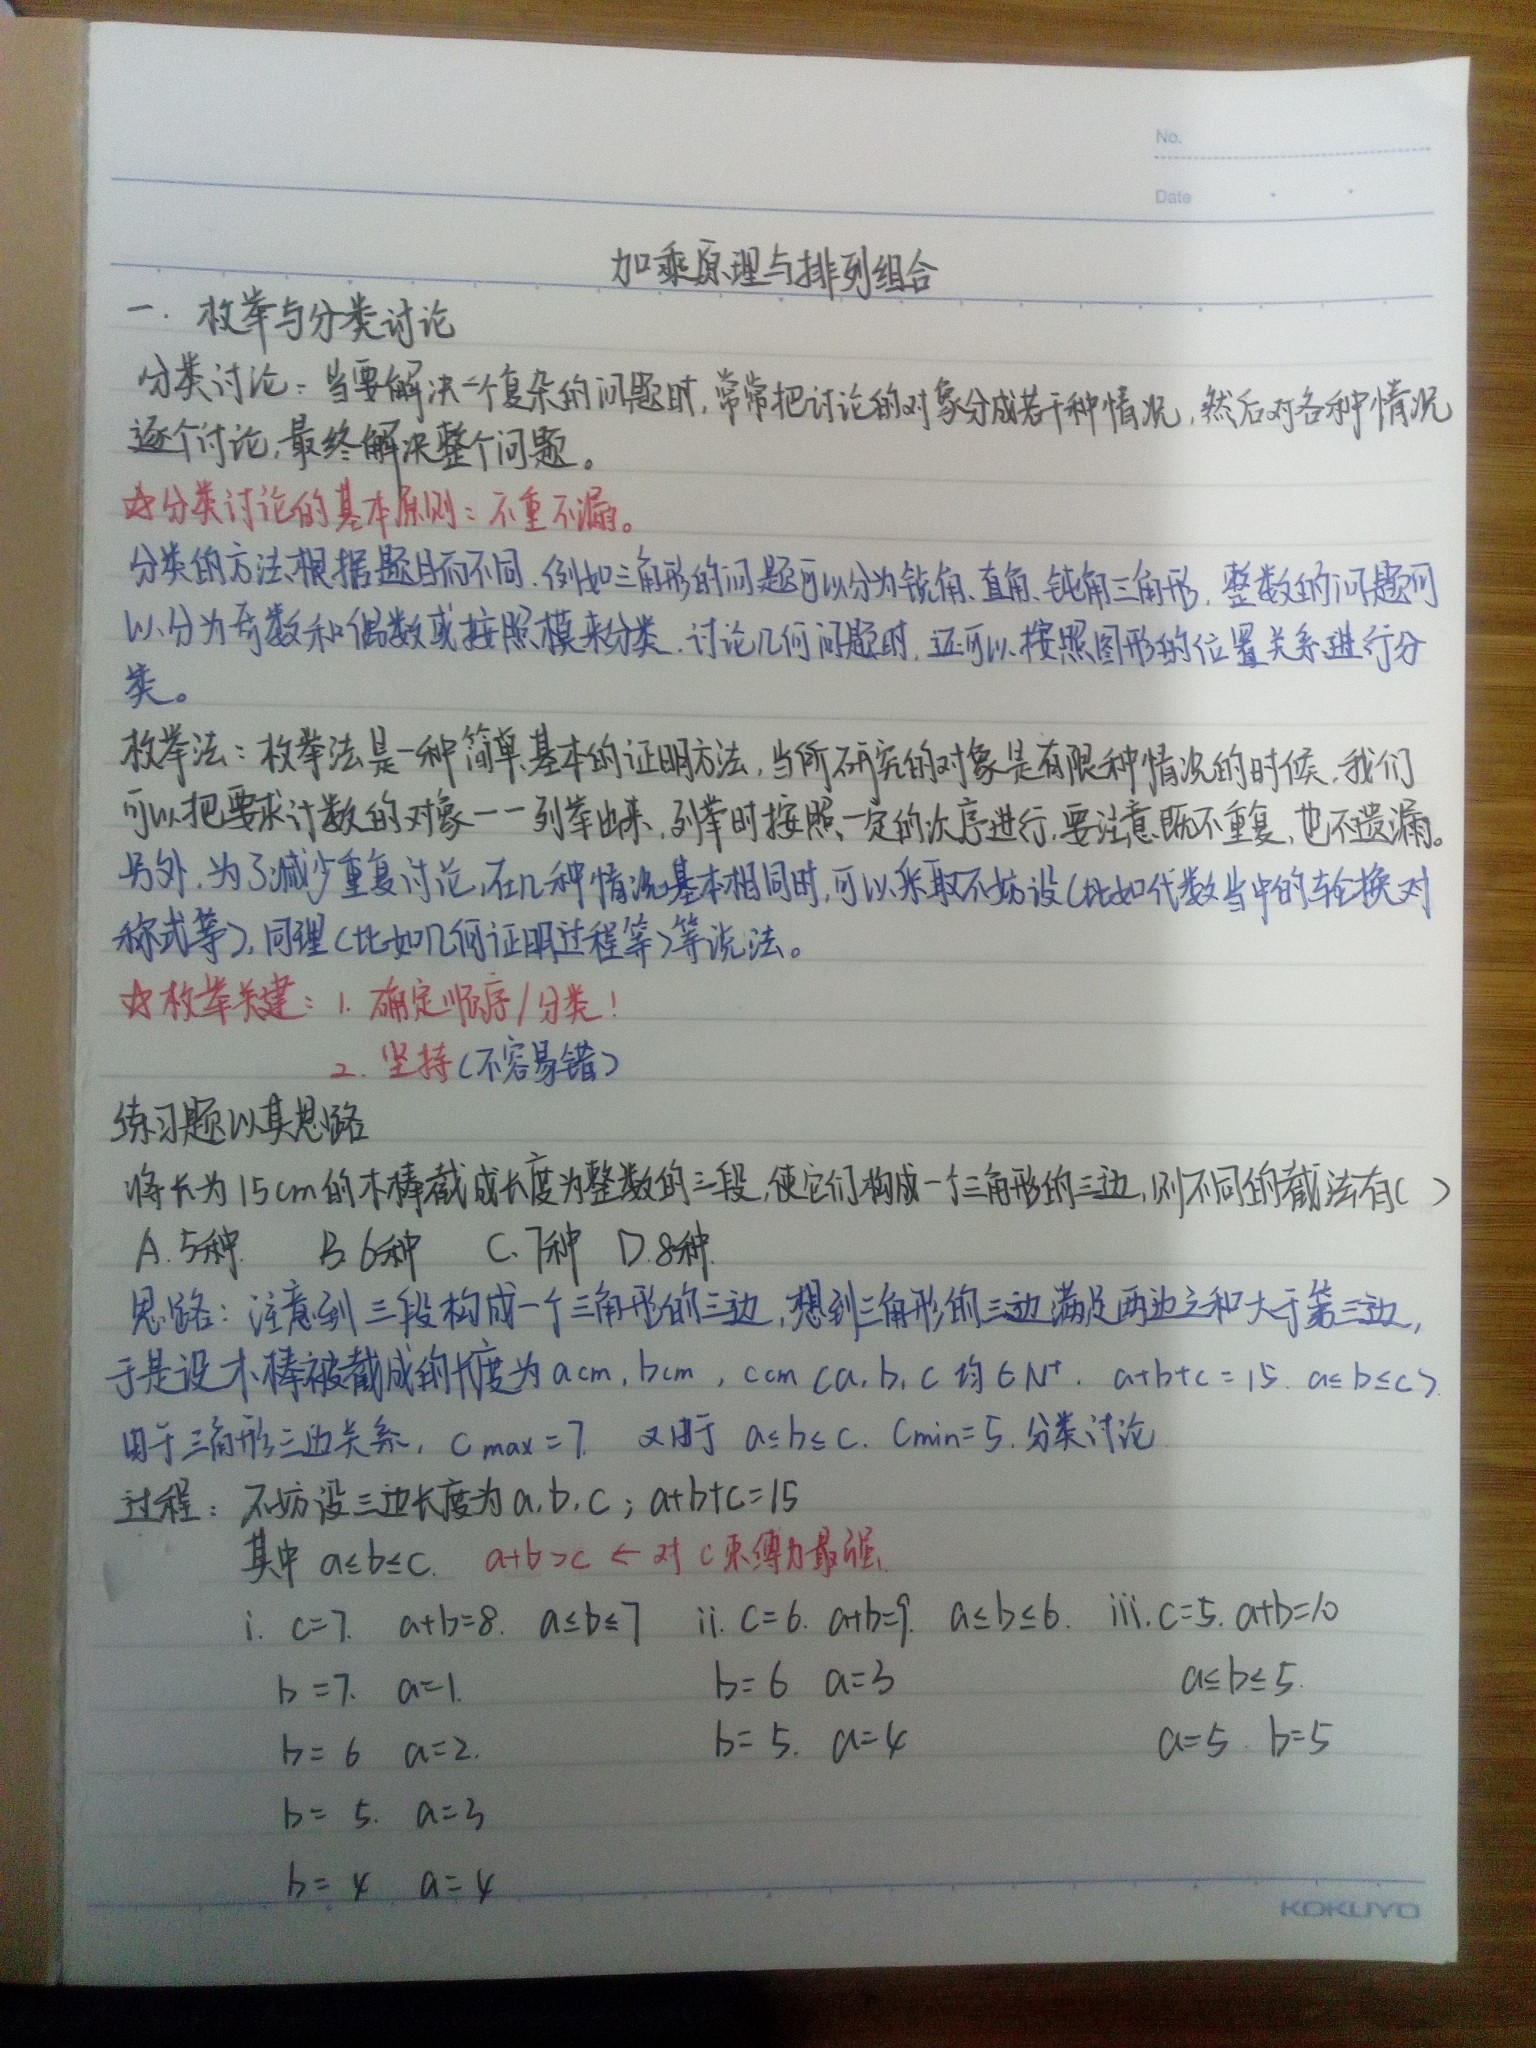 No.
Date
加乘原理与排列组合
一. 枚举与分类讨论
分类讨论：当要解决一个复杂的问题时，常常把讨论的对象分成若干种情况，然后对各种情况
逐个讨论，最终解决整个问题。
☆分类讨论的基本原则：不重不漏。
分类的方法根据题目而不同．例如三角形的问题可以分为锐角、直角、钝角三角形．整数的问题可
以分为奇数和偶数或按照模来分类．讨论几何问题时，还可以按照图形的位置关系进行分
类。
枚举法：枚举法是一种简单、基本的证明方法，当所研究的对象是有限种情况的时候，我们
可以把要求计数的对象一一列举出来，列举时按照一定的次序进行，要注意既不重复，也不遗漏。
另外，为了减少重复讨论，在几种情况基本相同时，可以采取不妨设（比如代数当中的轮换对
称式等），同理（比如几何证明过程等）等说法。
☆枚举关建：1. 确定顺序/分类！
2. 坚持（不容易错）
练习题以其思路
将长为15cm的木棒截成长度为整数的三段，使它们构成一个三角形的三边，则不同的截法有（ ）
A.5种. B.6种 C.7种 D.8种.
思路：注意到三段构成一个三角形的三边，想到三角形的三边满足两边之和大于第三边，
于是设木棒被截成的长度为acm，bcm，ccm（a，b，c均∈N⁺．a+b+c=15．a≤b≤c）
由于三角形三边关系，cmax=7. 又由于 a≤b≤c. Cmin=5. 分类讨论
过程：不妨设三边长度为a，b，c；a+b+c=15
其中 a≤b≤c. a+b>c ← 对c束缚力最强
i. c=7. a+b=8. a≤b≤7 ii. c=6. a+b=9. a≤b≤6. iii. c=5. a+b=10
b=7. a=1. b=6 a=3 a≤b≤5.
b=6 a=2. b=5. a=4 a=5. b=5
b=5. a=3
b=4 a=4
KOKUYO